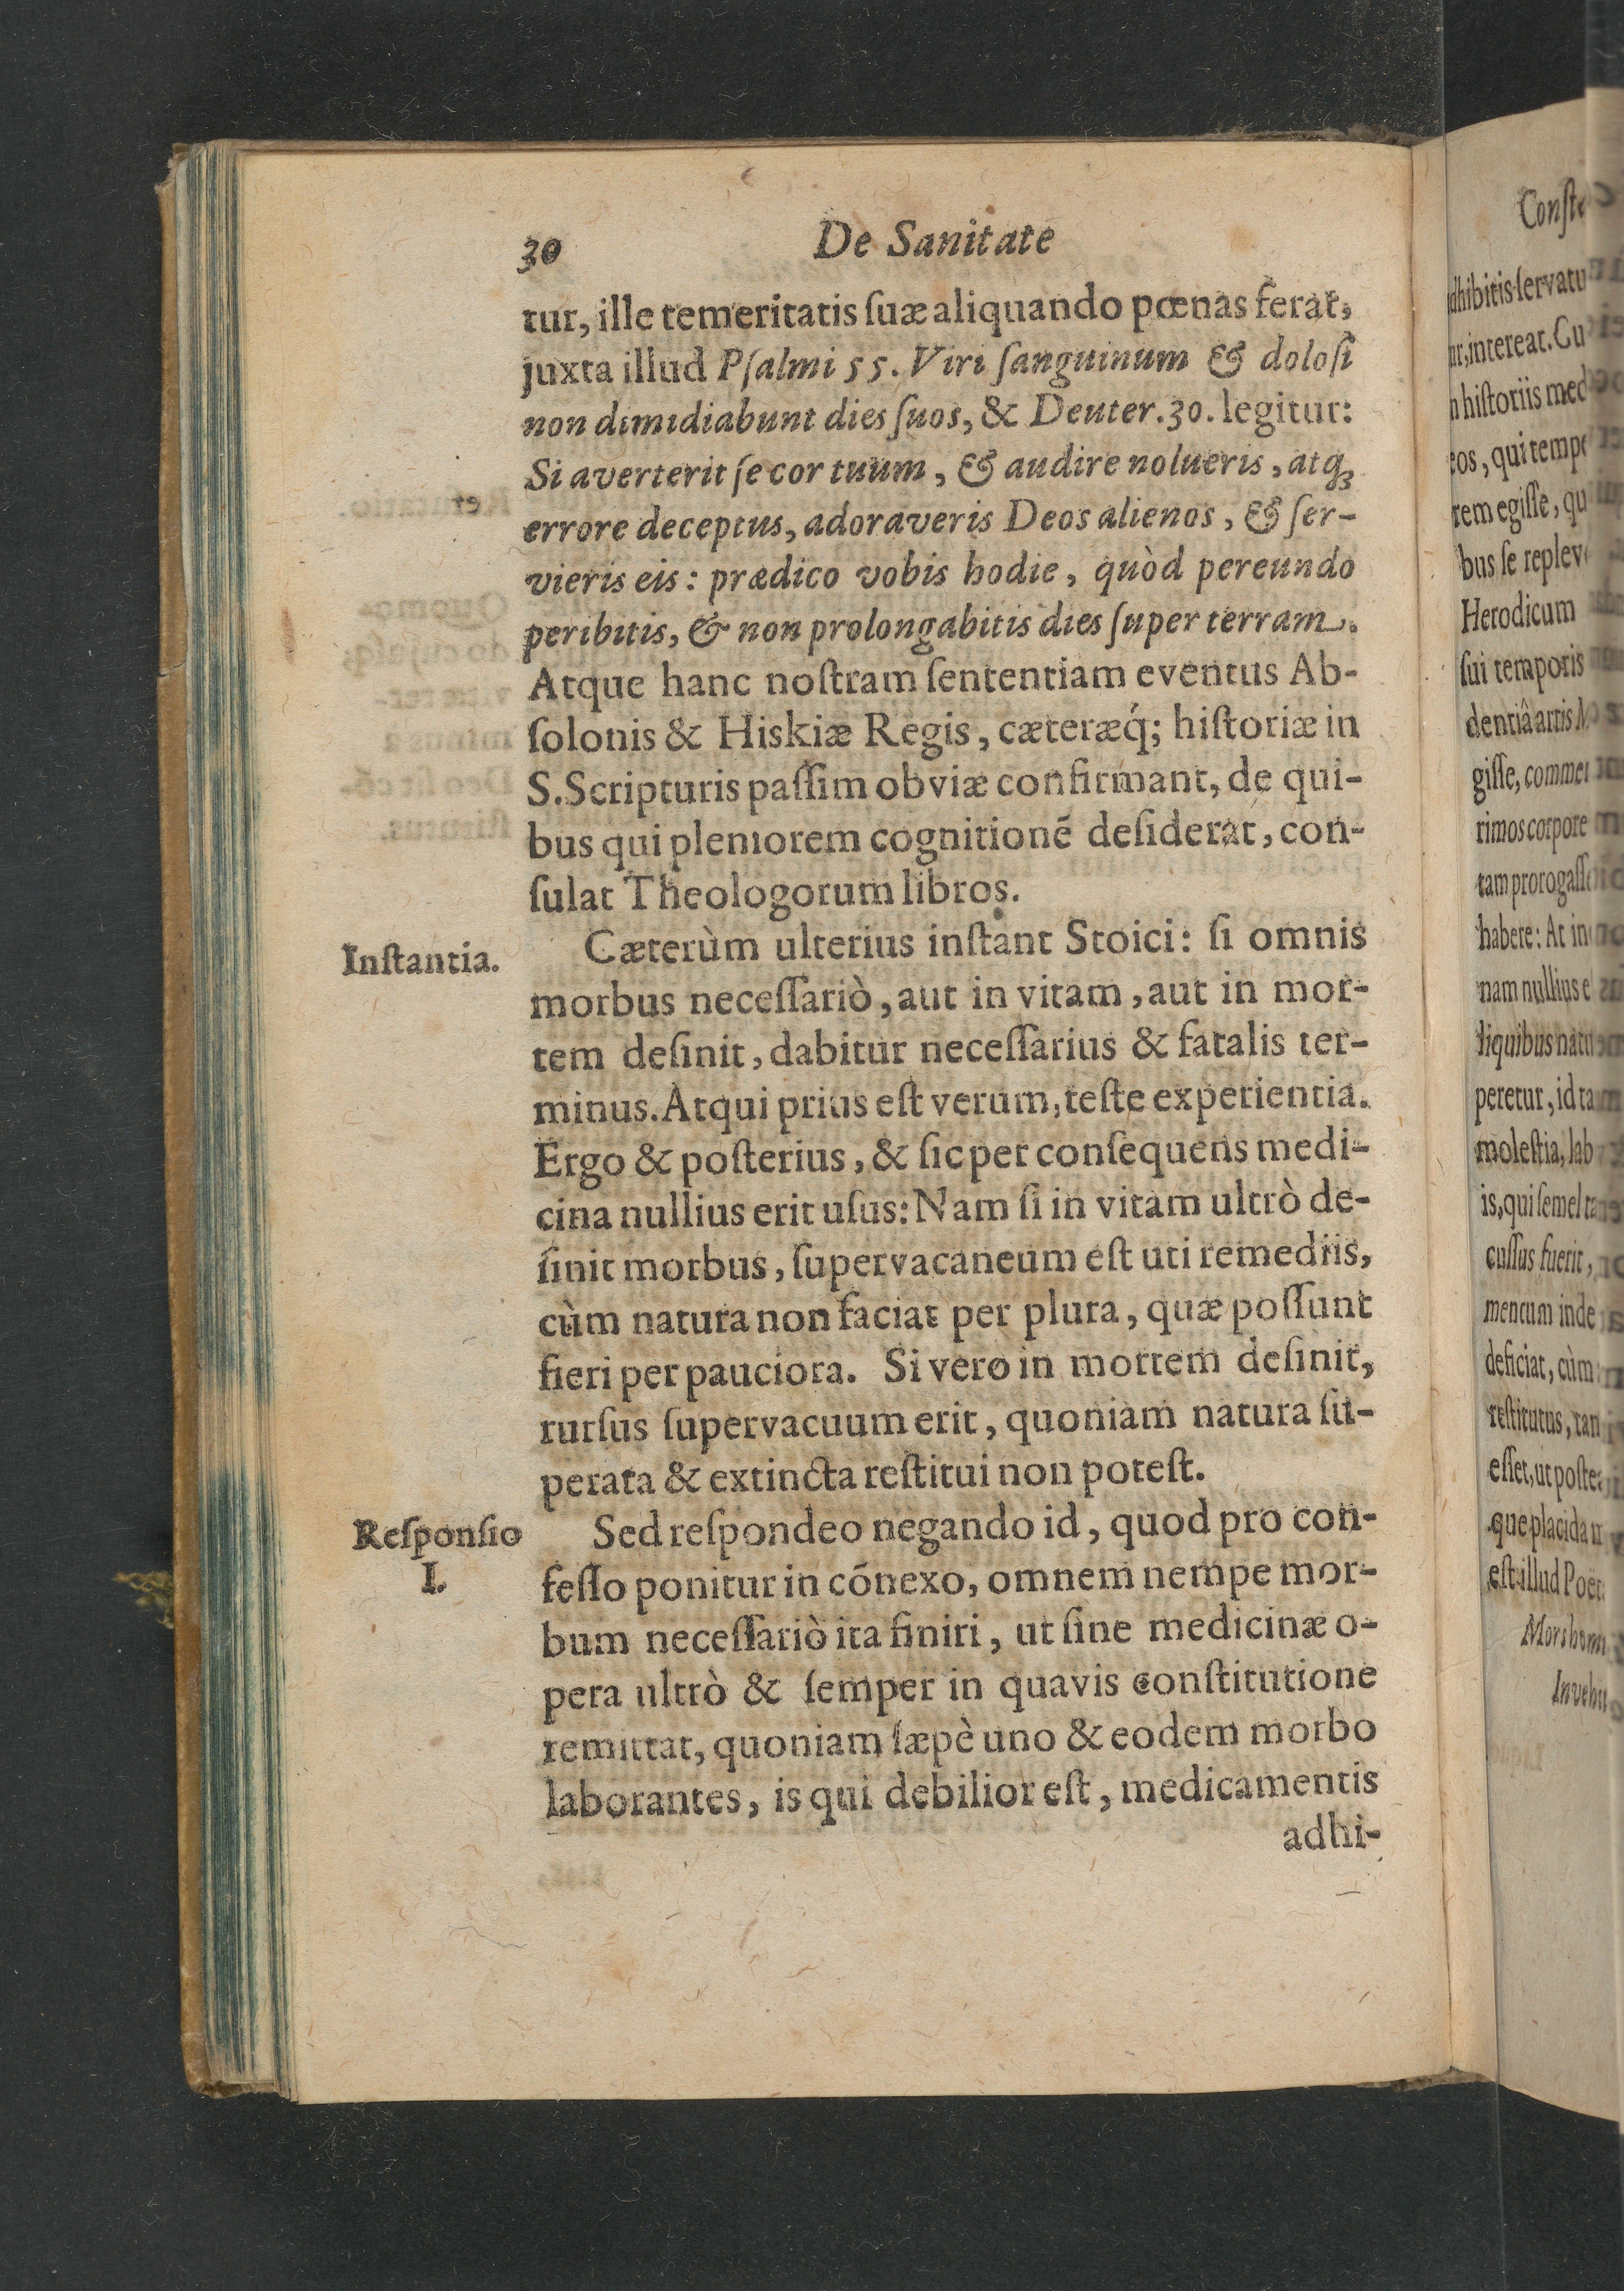 30 De Sanitate
tur, ille temeritatis ſuæ aliquando pœnas ferat,
juxta illud Pſalmi 55. Viri ſanguinum & doloſi
non dimidiabunt dies ſuos, & Deuter. 30. legitur:
Si averterit ſe cor tuum, & audire nolueris, atq;
errore deceptus, adoraveris Deos alienos, & ſer-
vieris eis: prædico vobis hodie, quòd pereundo
peribitis, & non prolongabitis dies ſuper terram.
Atque hanc noſtram ſententiam eventus Ab-
ſolonis & Hiskiæ Regis, cæteræq́; hiſtoriæ in
S. Scripturis paſſim obviæ confirmant, de qui-
bus qui pleniorem cognitionẽ deſiderat, con-
ſulat Theologorum libros.
Inſtantia.
Cæterùm ulterius inſtant Stoici: ſi omnis
morbus neceſſariò, aut in vitam, aut in mor-
tem deſinit, dabitur neceſſarius & fatalis ter-
minus. Atqui prius eſt verum, teſte experientia.
Ergo & poſterius, & ſic per conſequens medi-
cina nullius erit uſus: Nam ſi in vitam ultrò de-
ſinit morbus, ſupervacaneum eſt uti remediis,
cùm natura non faciat per plura, quæ poſſunt
fieri per pauciora. Si vero in mortem deſinit,
rurſus ſupervacuum erit, quoniam natura ſu-
perata & extincta reſtitui non poteſt.
Reſponſio
I.
Sed reſpondeo negando id, quod pro con-
feſſo ponitur in cõnexo, omnem nempe mor-
bum neceſſariò ita finiri, ut ſine medicinæ o-
pera ultrò & ſemper in quavis conſtitutione
remittat, quoniam ſæpè uno & eodem morbo
laborantes, is qui debilior eſt, medicamentis
adhi-
hiſtoriis
eos, qui
rem egiſſe,
bus ſe
Herodicum
ſui temporis
dentiâ artis
giſſe,
rimos corpore
habere: At
nam nullius
peretur, id
moleſtia,
is, qui ſemel
cuſſus fuerit,
mentum inde
deficiat, cùm
reſtitutus,
eſſet, ut
que placida
eſt illud